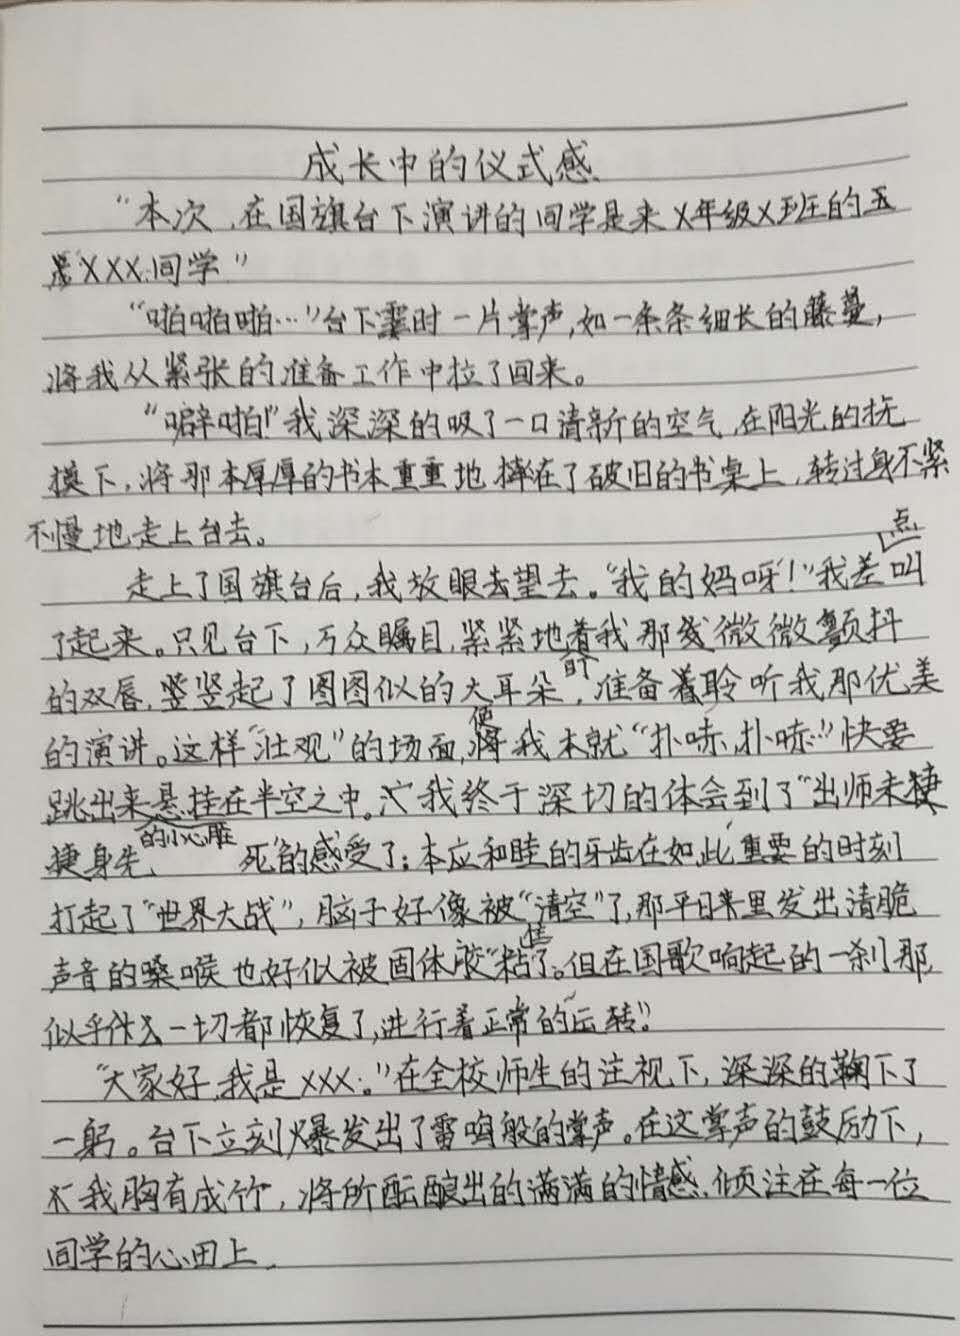 成长中的仪式感
“本次,在国旗台下演讲的同学是来X年级X班的五
是XXX同学”
“啪啪啪…”台下霎时一片掌声,如一条条细长的藤蔓,
将我从紧张的准备工作中拉了回来。
“噼啪!”我深深的吸了一口清新的空气,在阳光的抚
摸下,将那本厚厚的书本重重地摔在了破旧的书桌上,转过身不紧
不慢地走上台去。
点
走上了国旗台后,我放眼去望去。“我的妈呀!”我差叫
了起来。只见台下,万众瞩目,紧紧地着我那发微微颤抖
盯
的双唇,竖竖起了图图似的大耳朵,准备着聆听我那优美
使
的演讲。这样“壮观”的场面,将我本就“扑哧,扑哧”快要
跳出来悬挂在半空之中。我终于深切的体会到了“出师未捷
的小心脏
捷身先死”的感受了;本应和睦的牙齿在如此重要的时刻
打起了“世界大战”,脑子好像被“清空”了,那平日里发出清脆
住
声音的嗓喉也好似被固体胶“粘了。但在国歌响起的一刹那,
似乎什么一切都恢复了,进行着正常的“运转”。
“大家好,我是XXX。”在全校师生的注视下,深深的鞠下了
一躬。台下立刻爆发出了雷鸣般的掌声。在这掌声的鼓励下,
我胸有成竹,将所酝酿出的满满的情感,倾注在每一位
同学的心田上.